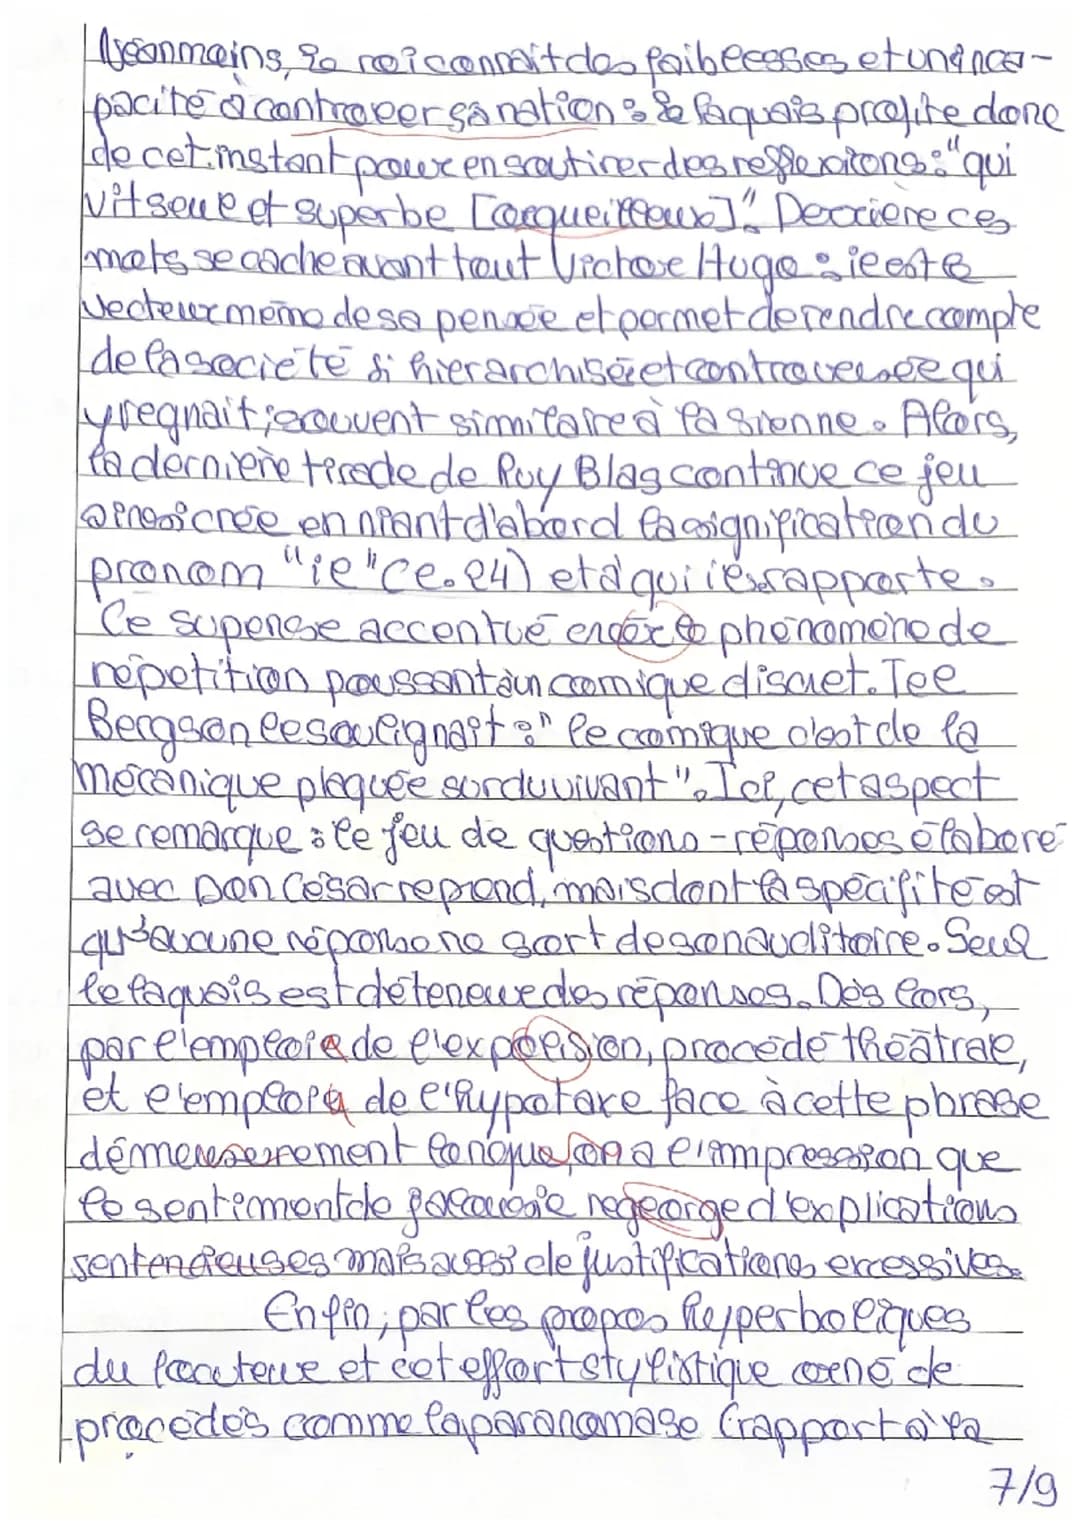 Néanmoins, le roi connaît des faiblesses et une inca-
pacité à controler sa nation : le laquais profite donc
de cet instant pour en soutirer des reflexions : "qui
vit seul et superbe [orgueilleux]". Derrière ces
mots se cache avant tout Victor Hugo : il est le
vecteur même de sa pensée et permet de rendre compte
de la société si hierarchisée et controversée qui
y regnait ; souvent similaire à la sienne. Alors,
la dernière tirade de Ruy Blas continue ce jeu
ainsi crée en niant d'abord la signification du
pronom "il" (l.24) et à qui il se rapporte.
Ce supense accentué encore le phénomène de
répetition poussant à un comique discret. Tel
Bergson le soulignait : " le comique c'est de la
mécanique plaquée sur du vivant". Ici, cet aspect
se remarque : le jeu de questions-réponses élaboré
avec Don César reprend, mais dont la spécifité est
qu'aucune réponse ne sort de son auditoire. Seul
le laquais est détenteur des réponses. Dès lors,
par l'emploie de l'explosion, procédé théâtral,
et l'emploi de l'hypotaxe face à cette phrase
démesurement longue, on a l'impression que
le sentiment de jalousie regeorge d'explications
sentencieuses mais aussi de justifications excessives.
Enfin, par les propos hyperboliques
du locuteur et cet effort stylistique orné de
procédés comme la paronomase (rapport à la
7/9